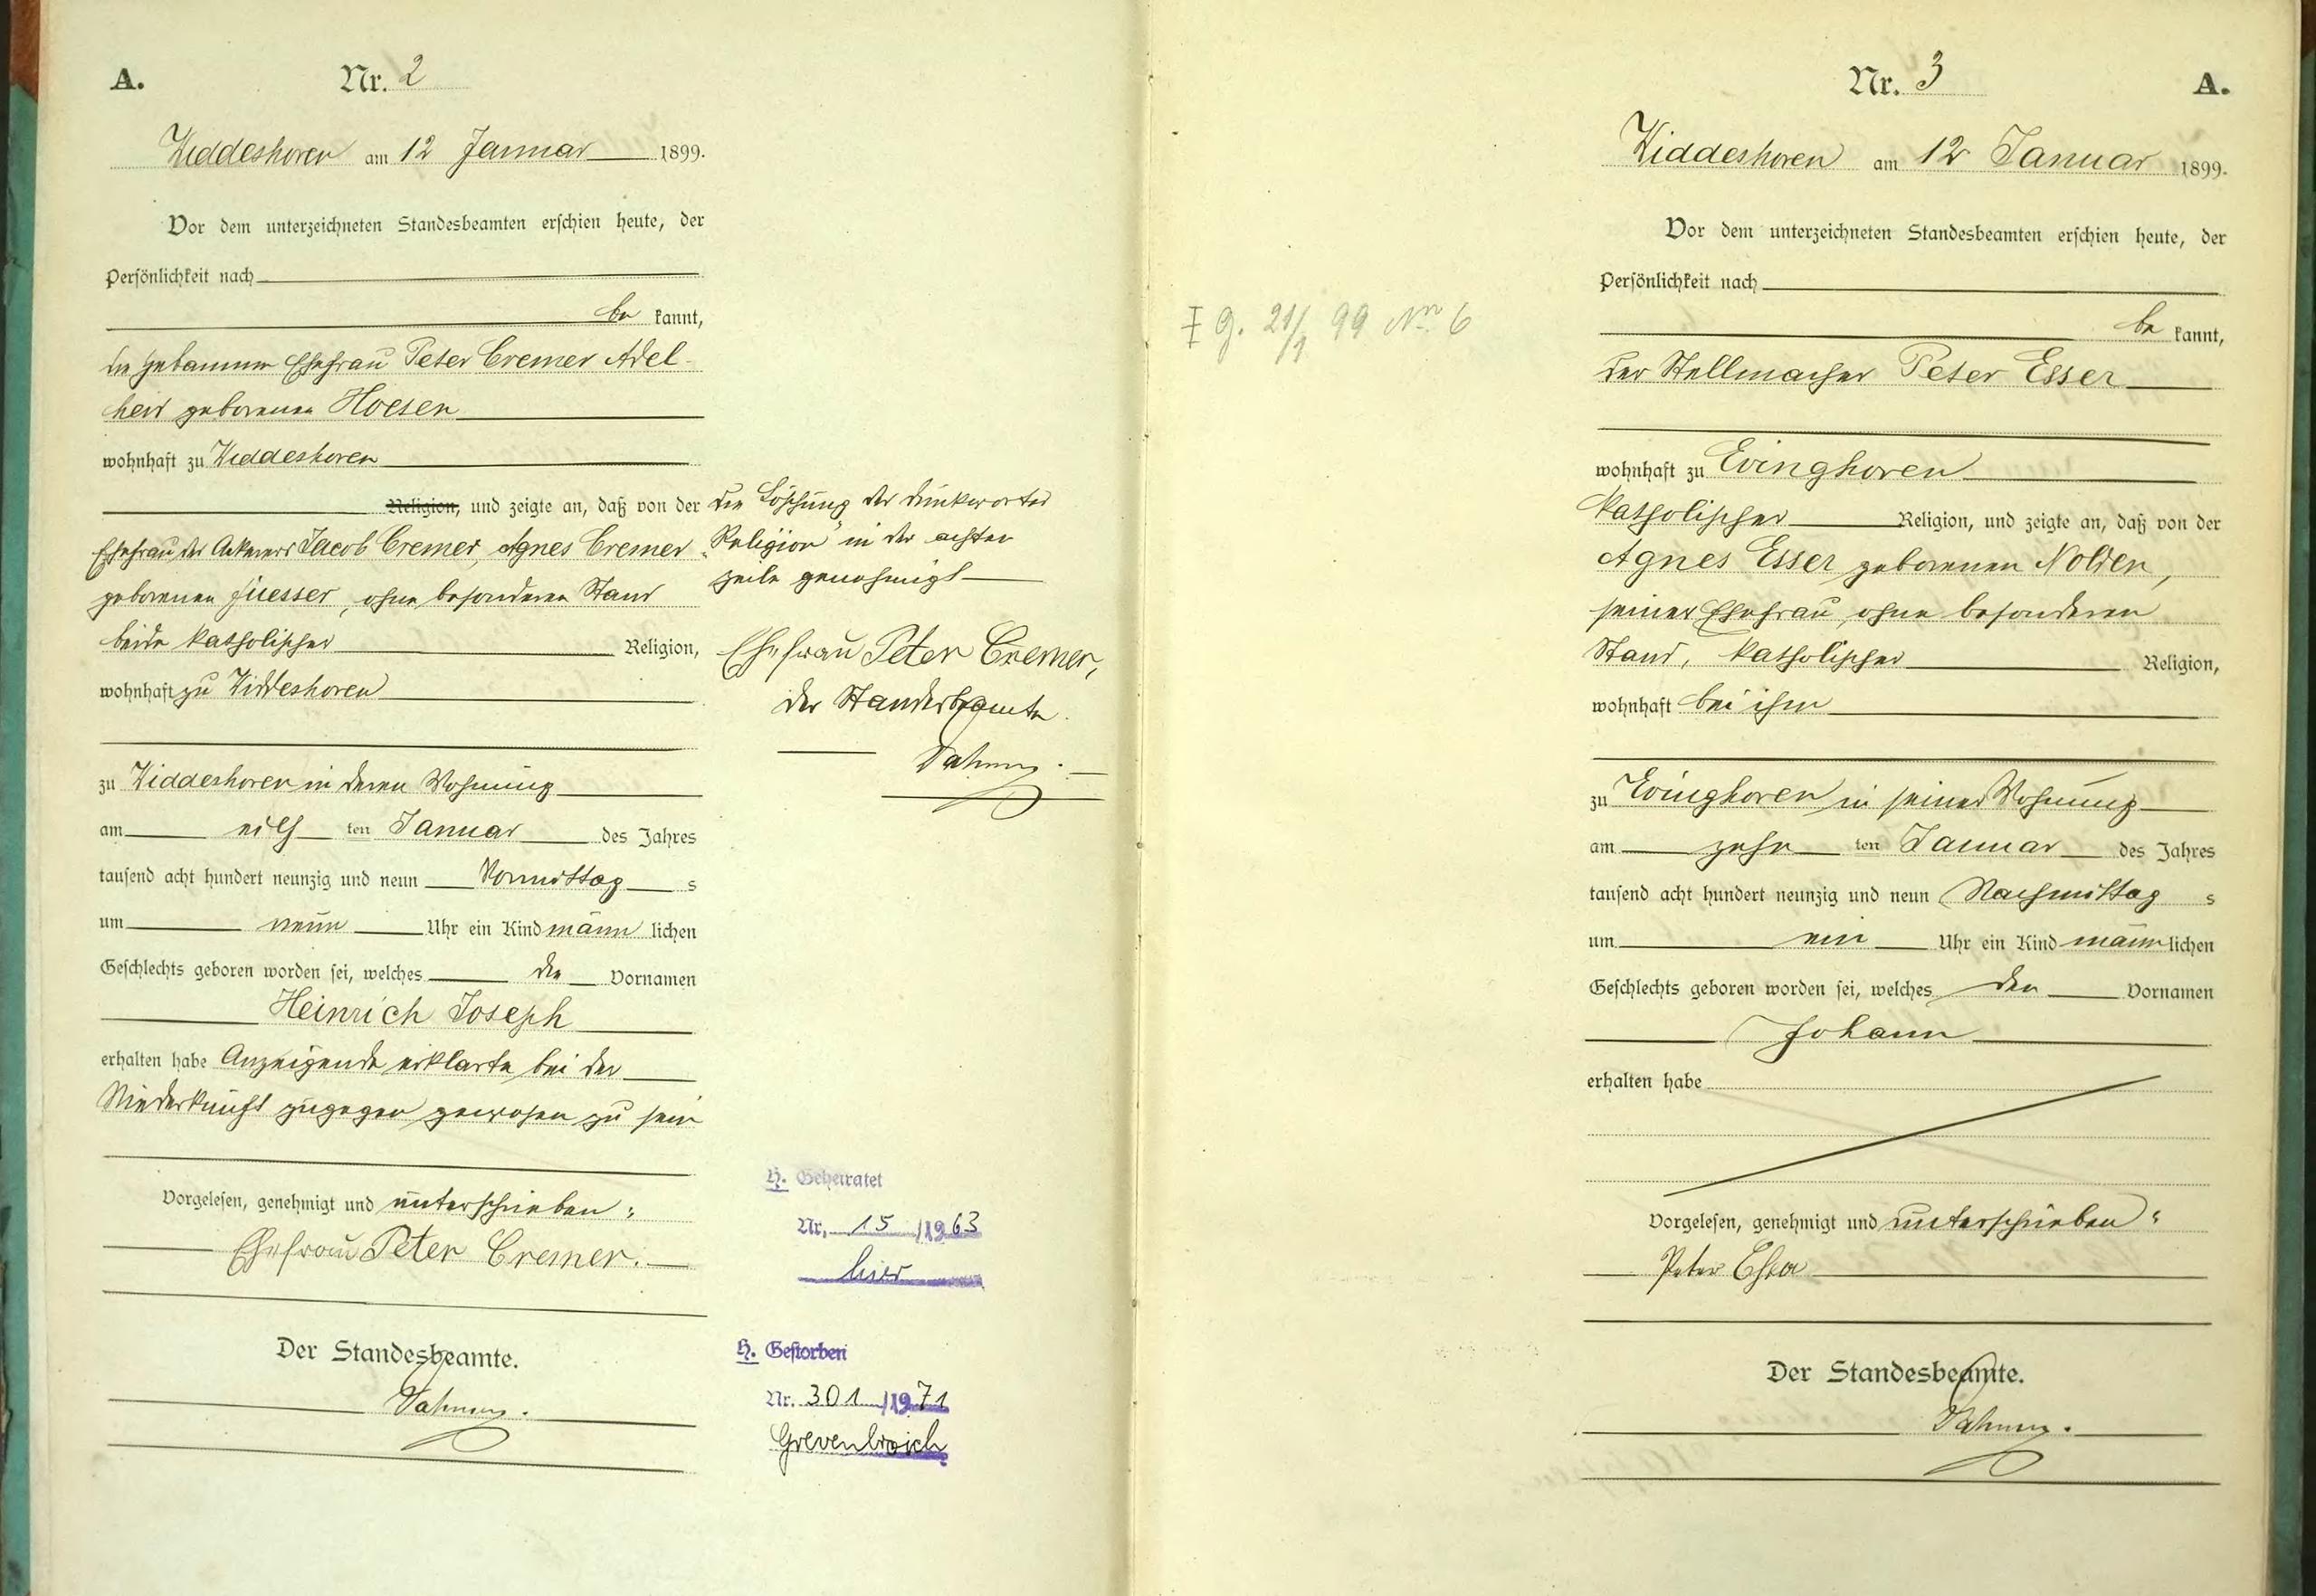 A.
Nr. 2
Widdeshoven am 12 Januar 1899.
Vor dem unterzeichneten Standesbeamten erschien heute, der
Persönlichkeit nach
be kannt,
die Hebamme Ehefrau Peter Cremer Adel-
heid geborene Hoesen
wohnhaft zu Widdeshoven
Religion, und zeigte an, daß von der
Ehefrau des Ackerers Jacob Cremer, Agnes Cremer
geborenen Juesser, ohne besonderen Stand
beide katholischer Religion,
wohnhaft zu Widdeshoven
zu Widdeshoven in deren Wohnung
am eilf ten Januar des Jahres
tausend acht hundert neunzig und neun Vormittag s
um neun Uhr ein Kind männ lichen
Geschlechts geboren worden sei, welches die Vornamen
Heinrich Joseph
erhalten habe Anzeigende erklärte bei der
Niederkunft zugegen gewesen zu sein
Vorgelesen, genehmigt und unterschrieben:
Ehefrau Peter Cremer.
Der Standesbeamte.
Die Löschung des Druckwortes
„Religion" in der achten
Zeile genehmigt
Ehefrau Peter Cremer,
Der Standesbeamte.
H. Geheiratet
Nr. 15 /1963
hier
H. Gestorben
Nr. 301 /1971
Grevenbroich
G. 21/1 99 No 6
Nr. 3
A.
Widdeshoven am 12 Januar 1899.
Vor dem unterzeichneten Standesbeamten erschien heute, der
Persönlichkeit nach
be kannt,
der Stellmacher Peter Esser
wohnhaft zu Evinghoven
katholischer Religion, und zeigte an, daß von der
Agnes Esser geborenen Nolden,
seiner Ehefrau, ohne besonderen
Stand, katholischer Religion,
wohnhaft bei ihm
zu Evinghoven in seiner Wohnung
am zehn ten Januar des Jahres
tausend acht hundert neunzig und neun Nachmittag s
um ein Uhr ein Kind männlichen
Geschlechts geboren worden sei, welches den Vornamen
Johann
erhalten habe
Vorgelesen, genehmigt und unterschrieben:
Peter Esser
Der Standesbeamte.